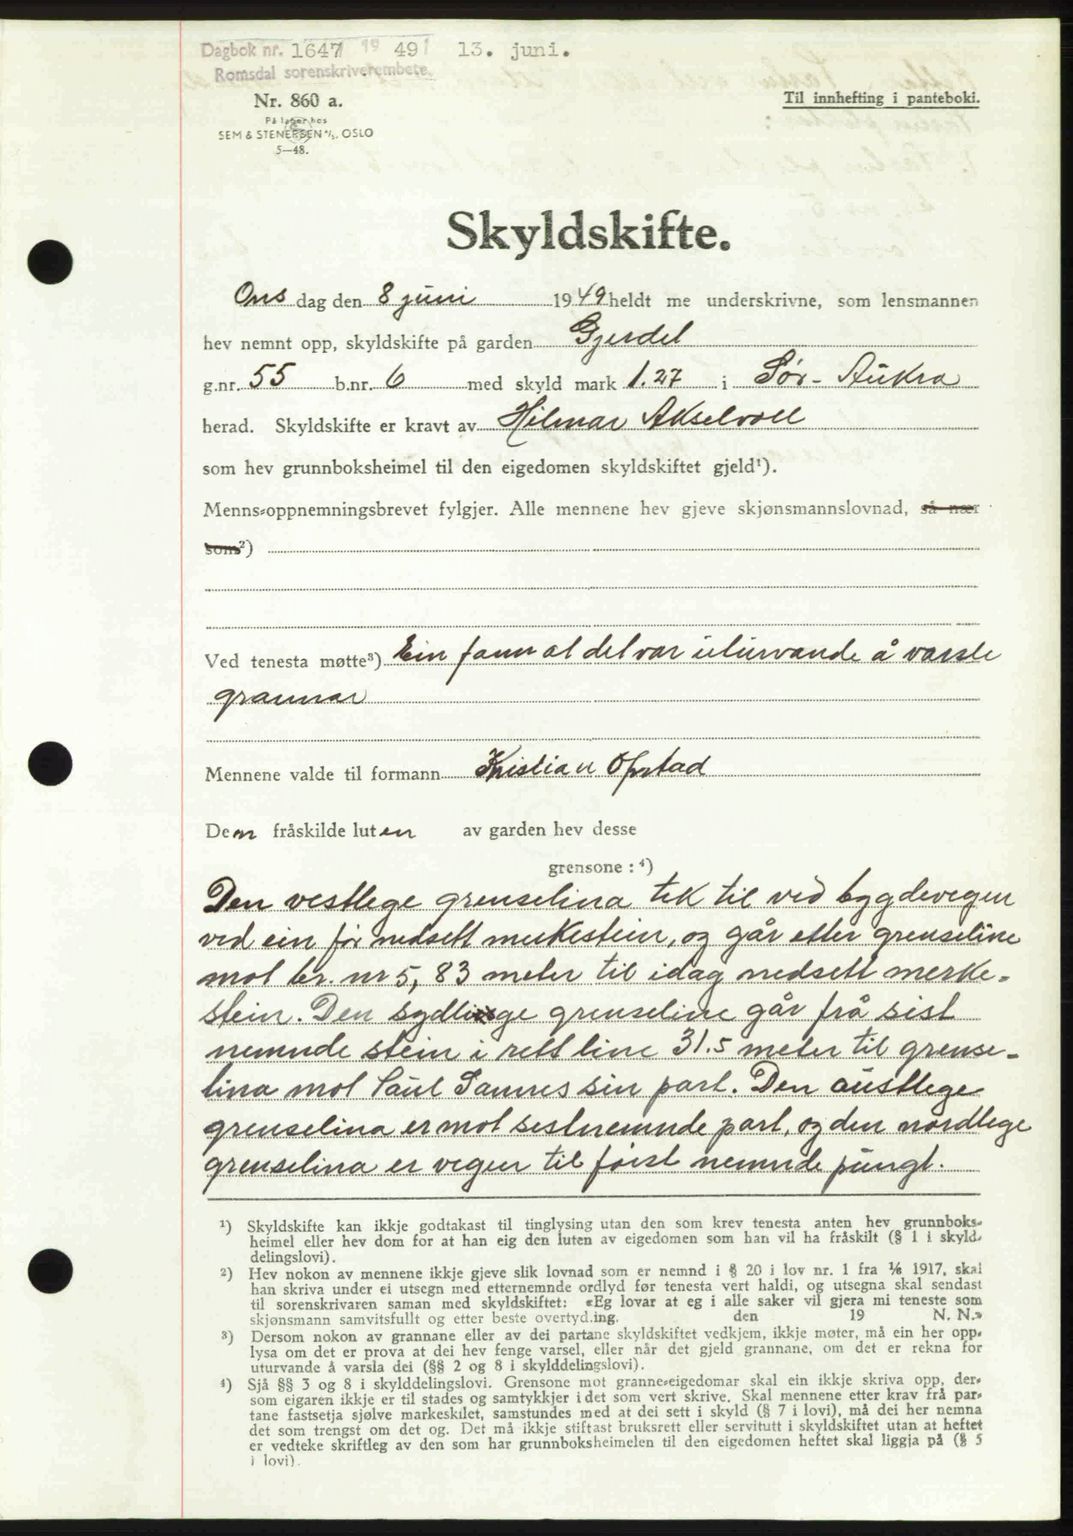 Dagbok nr. 1647 19 49 13. juni.
Romsdal sorenskriverembete.
Nr. 860 a.
På lager hos
SEM & STENERSEN A/S. OSLO
5—48.
Til innhefting i panteboki.
Skyldskifte.
Ons dag den 8 juni 1949 heldt me underskrivne, som lensmannen
hev nemnt opp, skyldskifte på garden Gjerdet
g.nr. 55 b.nr. 6 med skyld mark 1.27 i Sør-Aukra
herad. Skyldskifte er kravt av Hilmar Akselvoll
som hev grunnboksheimel til den eigedomen skyldskiftet gjeld¹).
Menns-oppnemningsbrevet fylgjer. Alle mennene hev gjeve skjønsmannslovnad, så nær
som²)
Ved tenesta møtte³) Ein fann at det var uturvande å varsle
grannar
Mennene valde til formann Kristian Opstad
Den fråskilde luten av garden hev desse
grensone : ⁴)
Den vestlege grenselina tek til ved bygdevegen
ved ein før nedsett merkestein, og går etter grenseline
mot br. nr 5, 83 meter til idag nedsett merke-
stein. Den sydlige grenseline går frå sist
nemnde stein i rett line 31.5 meter til grense-
lina mot Paul Sannes sin part. Den austlege
grenselina er mot sistnemnde part, og den nordlege
grenselina er vegen til først nemnde pungt.
¹) Skyldskifte kan ikkje godtakast til tinglysing utan den som krev tenesta anten hev grunnboks-
heimel eller hev dom for at han eig den luten av eigedomen som han vil ha fråskilt (§ 1 i skyld-
delingslovi).
²) Hev nokon av mennene ikkje gjeve slik lovnad som er nemnd i § 20 i lov nr. 1 fra 1/6 1917, skal
han skriva under ei utsegn med etternemnde ordlyd før tenesta vert haldi, og utsegna skal sendast
til sorenskrivaren saman med skyldskiftet: «Eg lovar at eg i alle saker vil gjera mi teneste som
skjønsmann samvitsfullt og etter beste overtyding. den 19 N. N.»
³) Dersom nokon av grannane eller av dei partane skyldskiftet vedkjem, ikkje møter, må ein her opp-
lysa om det er prova at dei hev fenge varsel, eller når det gjeld grannane, om det er rekna for
uturvande å varsla dei (§§ 2 og 8 i skylddelingslovi).
⁴) Sjå §§ 3 og 8 i skylddelingslovi. Grensone mot granne-eigedomar skal ein ikkje skriva opp, der-
som eigaren ikkje er til stades og samtykkjer i det som vert skrive. Skal mennene etter krav frå par-
tane fastsetja sjølve markeskilet, samstundes med at dei sett i skyld (§ 7 i lovi), må dei her nemna
det som trengst om det og. Det må ikkje stiftast bruksrett eller servitutt i skyldskiftet utan at heftet
er vedteke skriftleg av den som har grunnboksheimelen til den eigedomen heftet skal liggja på (§ 5
i lovi).